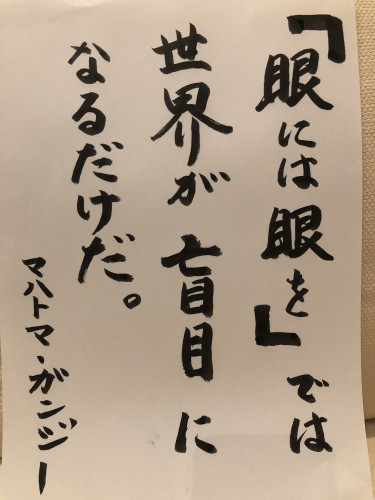 「眼には眼を」では
世界が盲目に
なるだけだ。
マハトマ・ガンジー